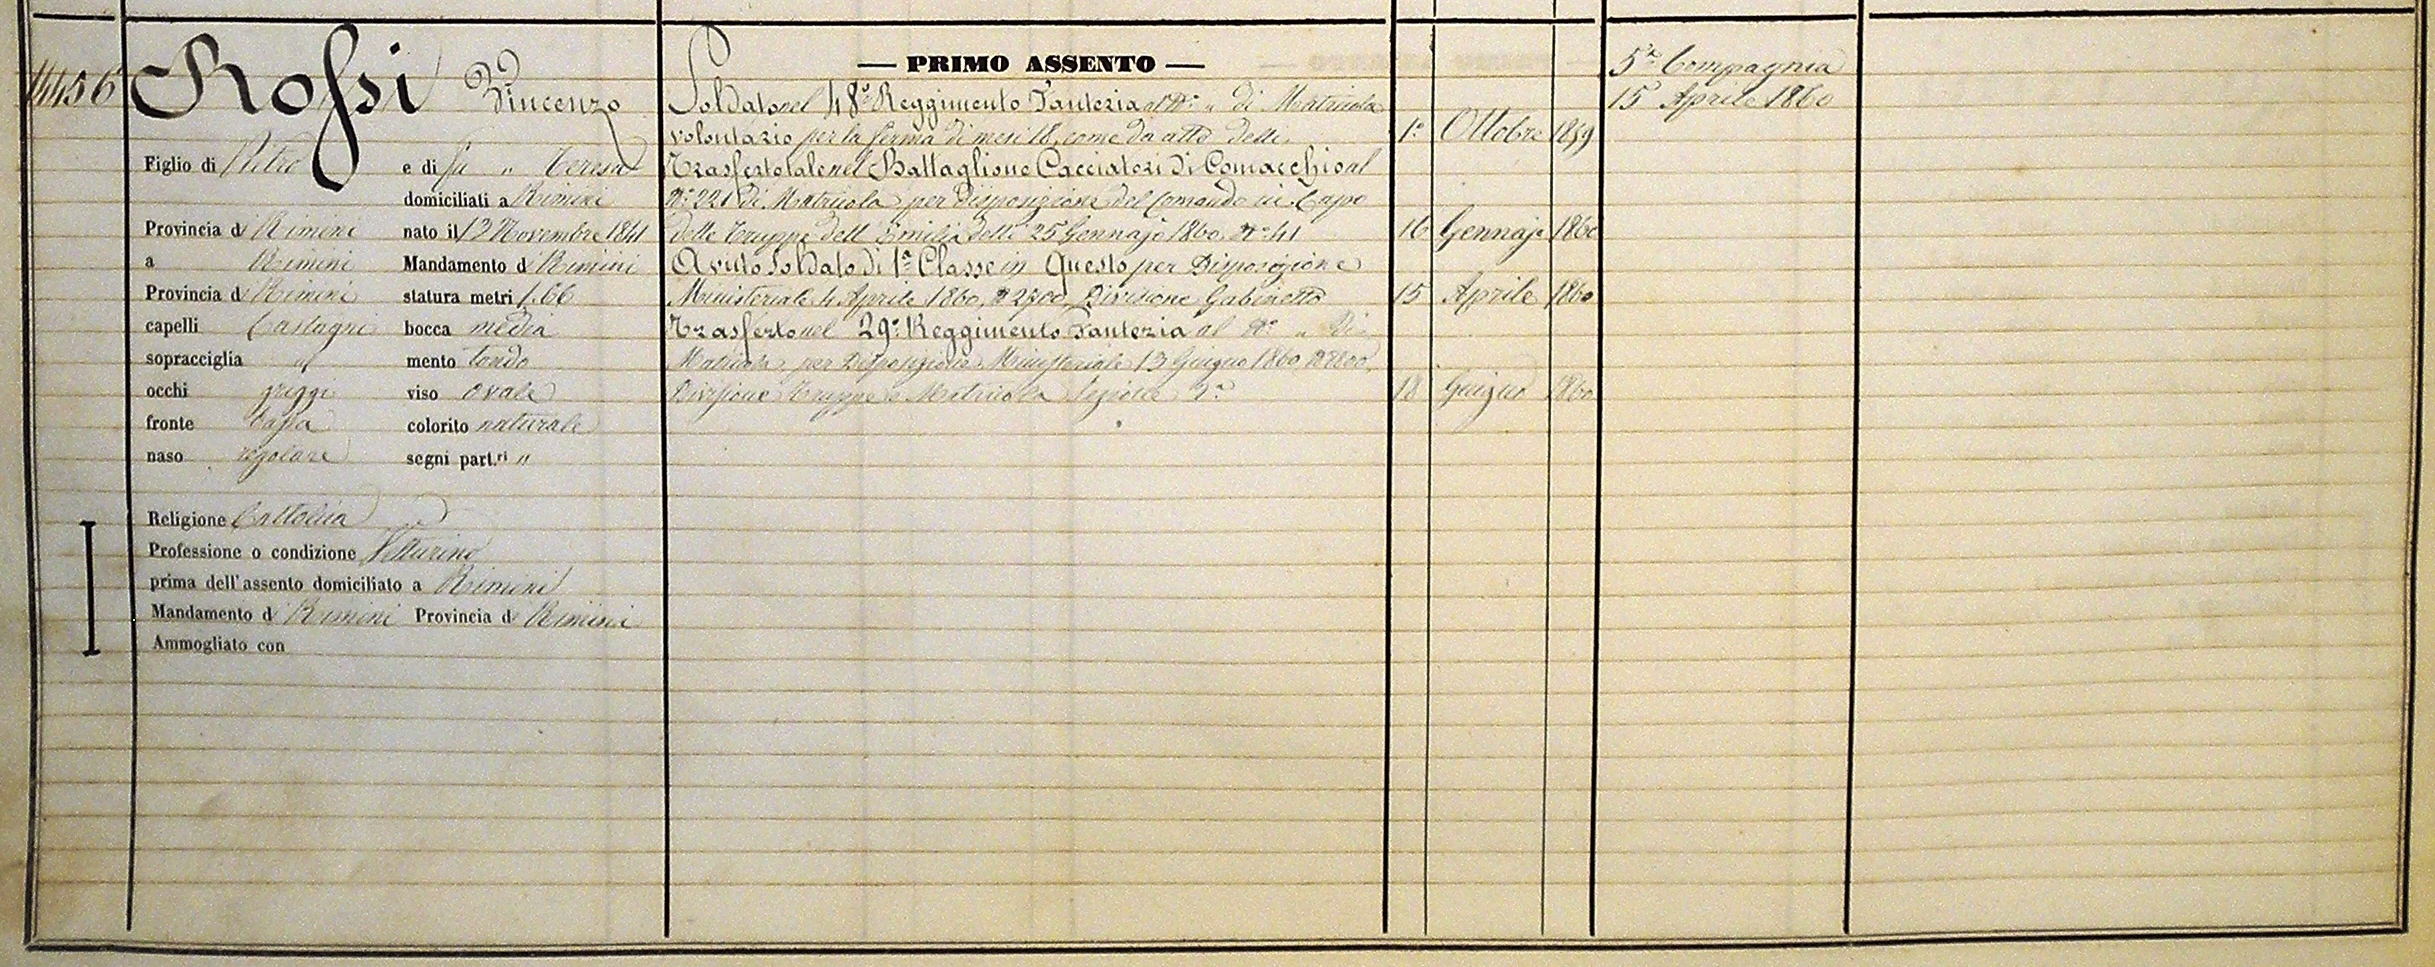 14456
Rossi Vincenzo
Figlio di Pietro e di fu „ Teresa
domiciliati a Rimini
Provincia di Rimini nato il 12 Novembre 1841
a Rimini Mandamento di Rimini
Provincia di Rimini statura metri 1.66
capelli Castagni bocca media
sopracciglia id mento tondo
occhi griggi viso ovale
fronte bassa colorito naturale
naso regolare segni part.ri „
Religione Cattolica
Professione o condizione Vetturino
prima dell'assento domiciliato a Rimini
Mandamento di Rimini Provincia di Rimini
Ammogliato con
— PRIMO ASSENTO —
Soldato nel 48° Reggimento Fanteria al N° „ di Matricola
volontario per la ferma di mesi 18, come da atto delli 1° Ottobre 1859
Trasferto tale nel Battaglione Cacciatori di Comacchio al
N° 221 di Matricola per Disposizione del Comando in Capo
delle Truppe dell'Emilia delli 25 Gennajo 1860 N° 41 16 Gennajo 1860
Avuto Soldato di 1a Classe in Questo per Disposizione
Ministeriale 4 Aprile 1860, N 2700, Divisione Gabinetto 15 Aprile 1860
Trasferto nel 29° Reggimento Fanteria al N° „ di
Matricola per Disposizione Ministeriale 13 Giugno 1860
Divisione Truppe e Matricola Sezione 2a 18 Giugno 1860
5a Compagnia
15 Aprile 1860